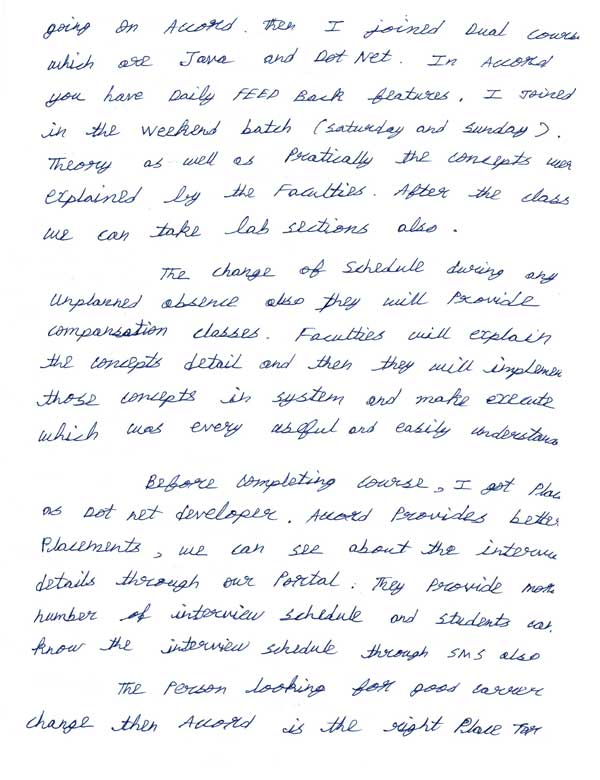 going on Accord. then I joined Dual course
which are Java and Dot Net. In Accord
you have Daily FEED Back features. I joined
in the weekend batch (saturday and sunday).
Theory as well as Pratically the concepts wer
explained by the Faculties. After the class
we can take lab sections also.
The change of schedule during any
unplanned absence also they will Provide
compansation classes. Faculties will explain
the concepts detail and then they will implemen
those concepts in system and make execute
which was every useful and easily understand
Before completing course, I got Plac
as Dot net developer. Accord Provides better
Placements, we can see about the intervie
details through our Portal. They Provide more
number of interview schedule and students can
know the interview schedule through SMS also
The Person looking for good carrer
change then Accord is the right Place